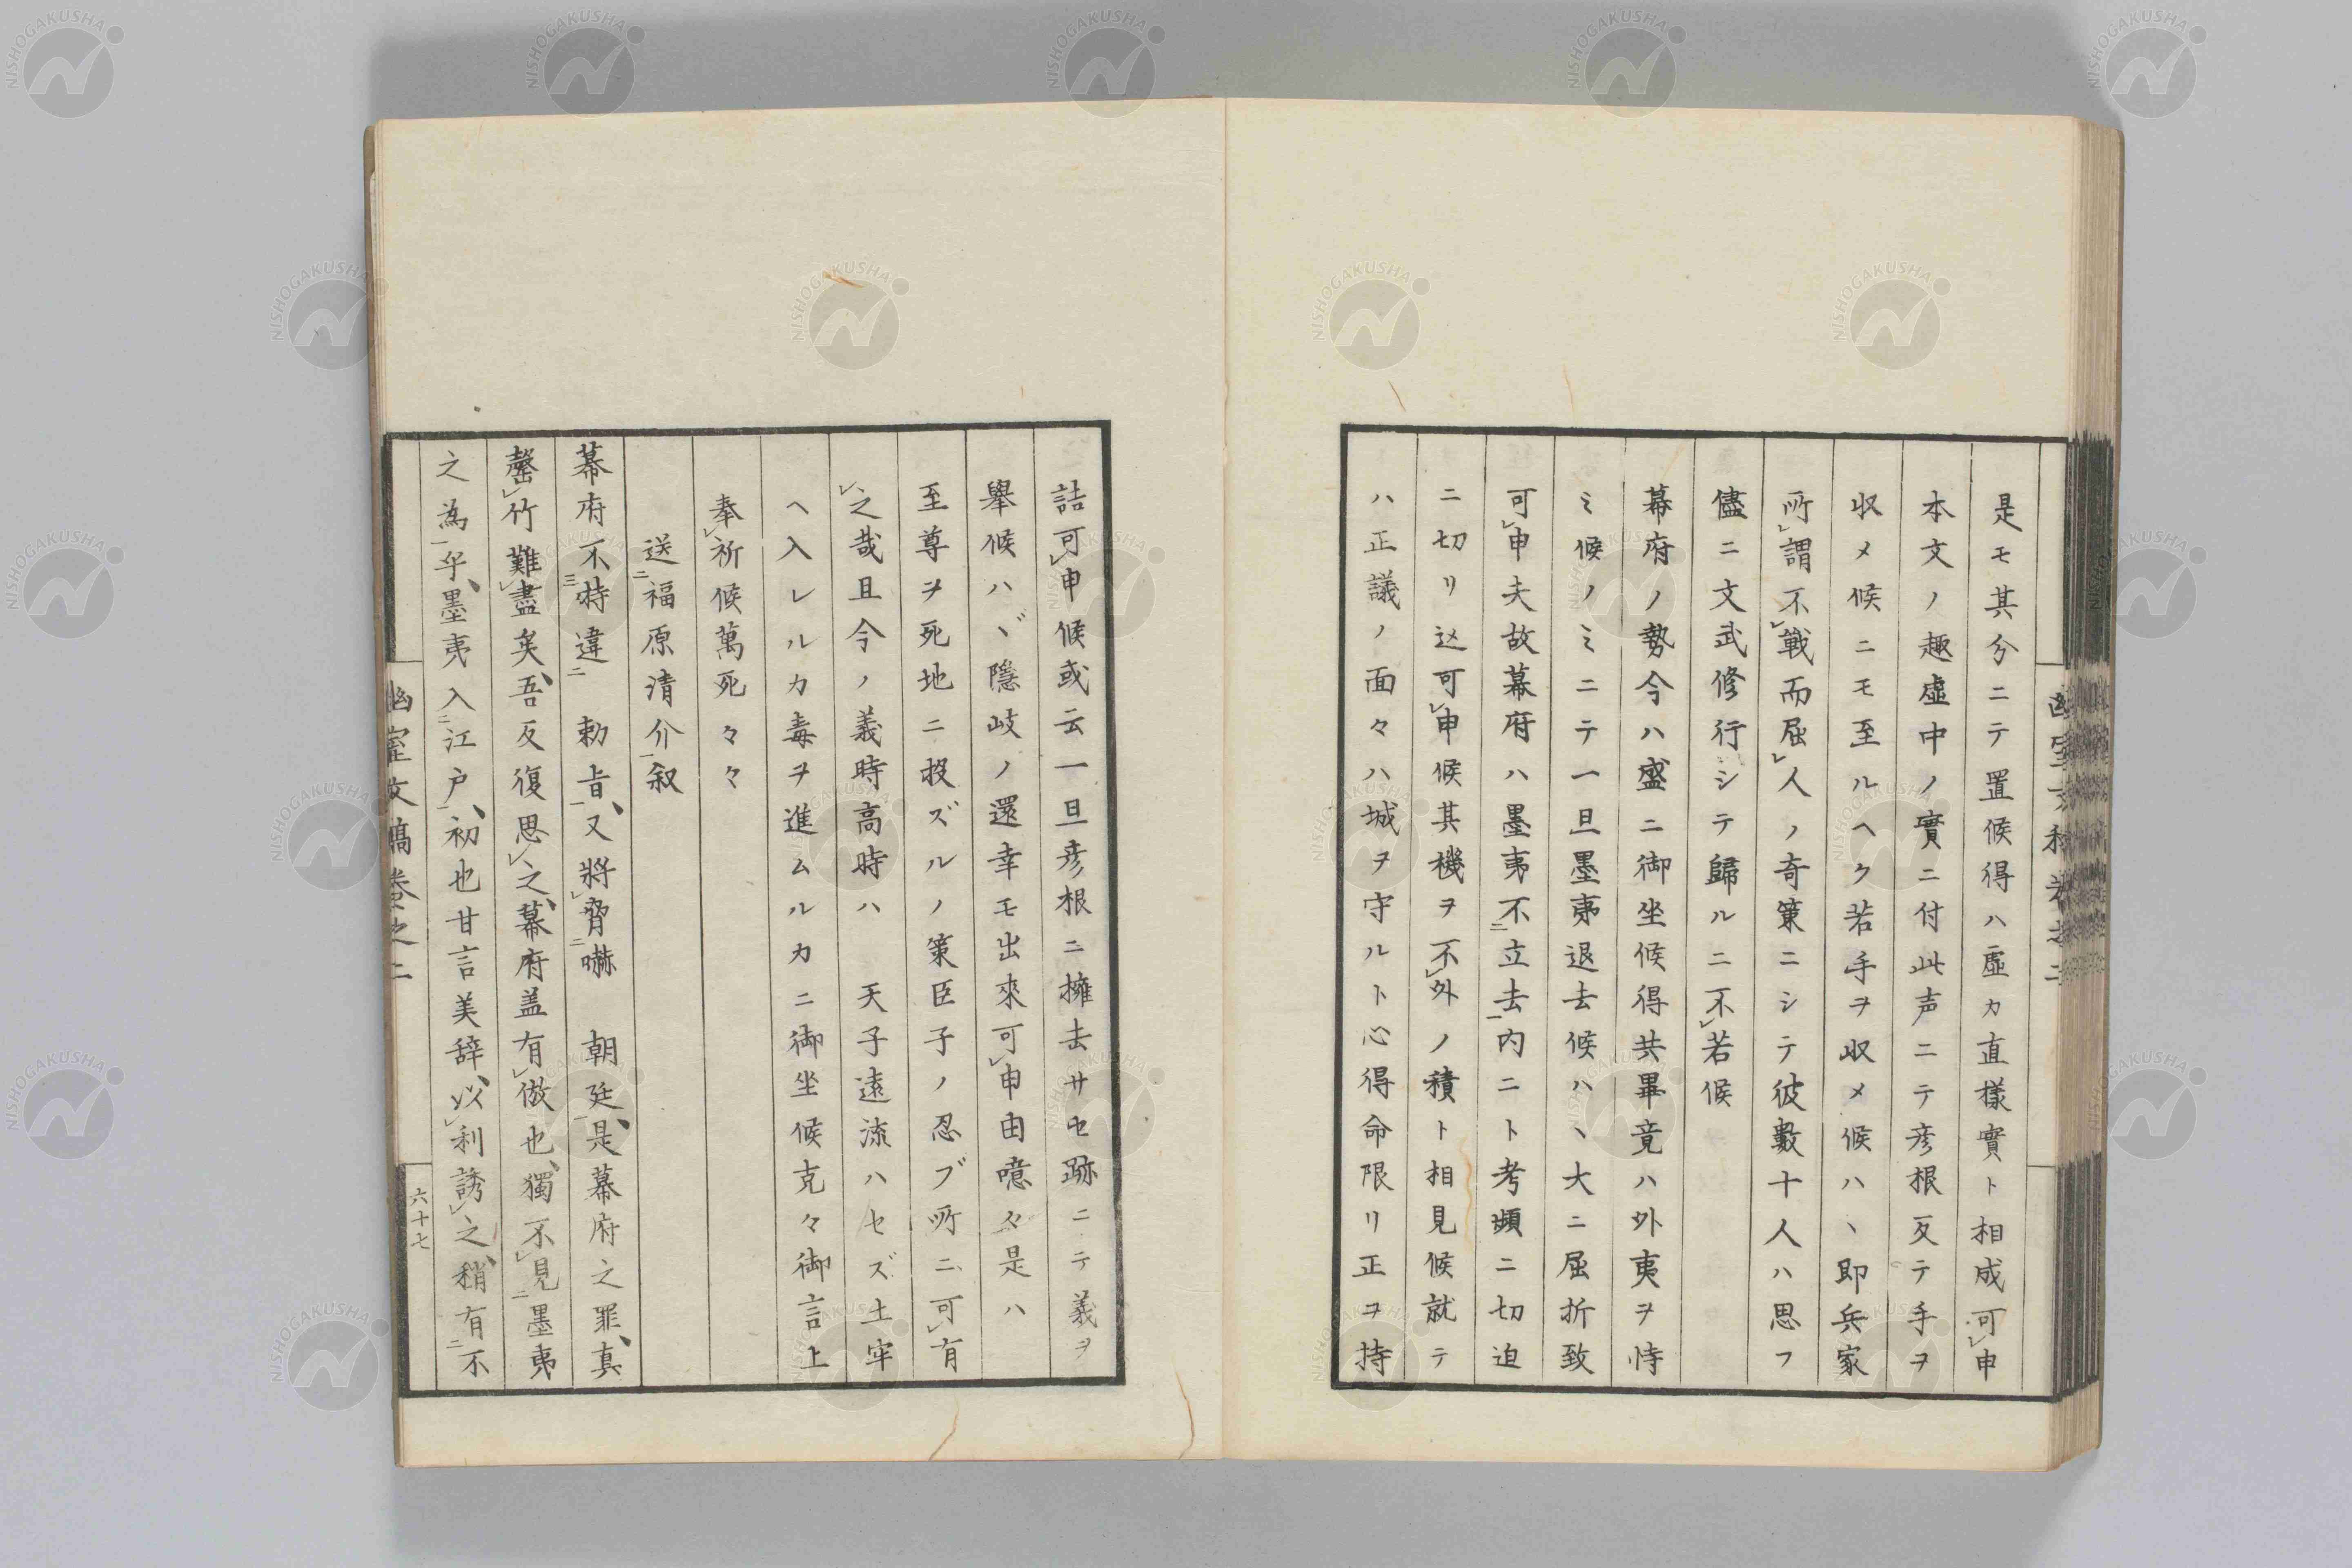 是モ其分ニテ置候得ハ虛カ直樣實ト相成可レ申
本文ノ趣虛中ノ實ニ付此声ニテ彦根反テ手ヲ
収メ候ニモ至ルヘク若手ヲ収メ候ハヽ即兵家
所レ謂不レ戰而屈レ人ノ奇策ニシテ彼數十人ハ思フ
儘ニ文武修行シテ歸ルニ不レ若候
幕府ノ勢今ハ盛ニ御坐候得共畢竟ハ外夷ヲ恃
ミ候ノミニテ一旦墨夷退去候ハヽ大ニ屈折致
可レ申夫故幕府ハ墨夷不二立去一内ニト考頻ニ切迫
ニ切リ込可レ申候其機ヲ不レ外ノ積ト相見候就テ
ハ正議ノ面々ハ城ヲ守ルト心得命限リ正ヲ持
詰可レ申候或云一旦彦根ニ擁去サセ跡ニテ義ヲ
舉候ハヾ隱岐ノ還幸モ出來可レ申由噫々是ハ
至尊ヲ死地ニ投ズルノ策臣子ノ忍ブ所ニ可レ有
レ之哉且今ノ義時高時ハ 天子遠流ハセズ土牢
ヘ入レルカ毒ヲ進ムルカニ御坐候克々御言上
奉レ祈候萬死々々
送二福原清介一叙
幕府不三特違二 勅旨一、又將レ脅二嚇 朝廷一、是幕府之罪、真
罄レ竹難レ盡矣、吾反復思レ之、幕府盖有レ倣也、獨不レ見二墨夷
之為一乎、墨夷入二江戸一、初也甘言美辞、以レ利誘レ之、稍有二不
幽室文稿卷之二
六十七